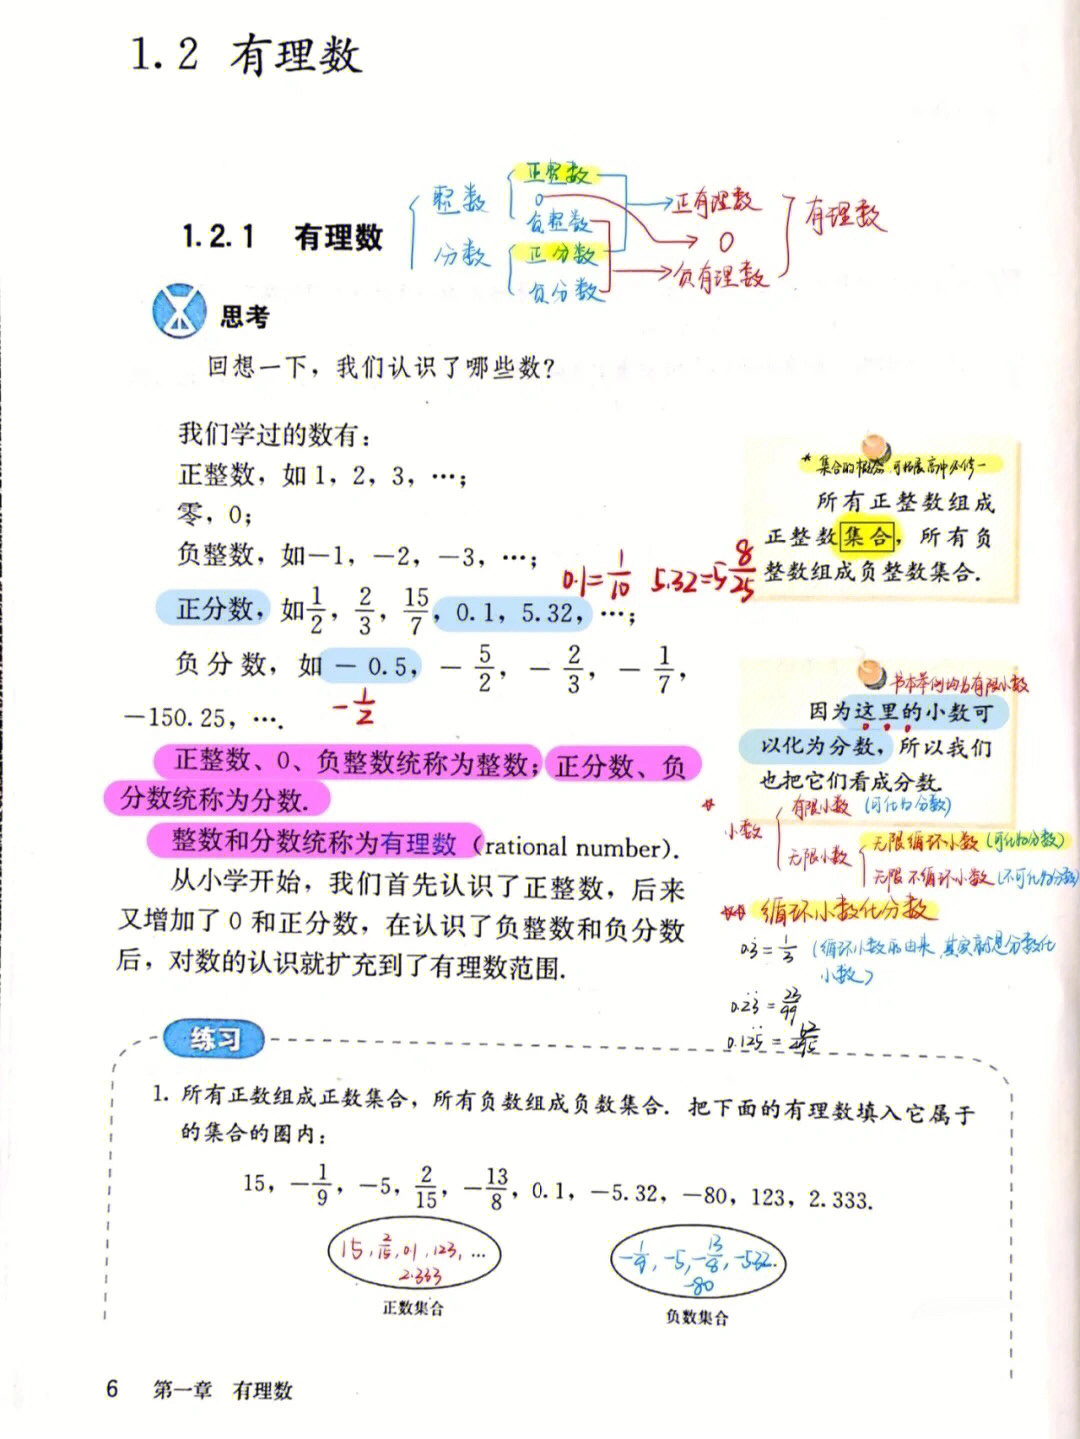 1.2 有理数
整数
分数
正整数
0
负整数
正分数
负分数
正有理数
0
负有理数
有理数
1.2.1 有理数
思考
回想一下，我们认识了哪些数？
我们学过的数有：
正整数，如1，2，3，…；
零，0；
负整数，如－1，－2，－3，…；
0.1=1/10 5.32=5 8/25
正分数，如1/2，2/3，15/7，0.1，5.32，…；
负分数，如－0.5，－5/2，－2/3，－1/7，
-1/2
－150.25，….
正整数、0、负整数统称为整数；正分数、负
分数统称为分数.
整数和分数统称为有理数（rational number）.
从小学开始，我们首先认识了正整数，后来
又增加了0和正分数，在认识了负整数和负分数
后，对数的认识就扩充到了有理数范围.
* 集合的概念,可拓展高中必修一
所有正整数组成
正整数集合，所有负
整数组成负整数集合.
书本举例均为有限小数
因为这里的小数可
以化为分数，所以我们
也把它们看成分数.
小数
有限小数 (可化为分数)
无限小数
无限循环小数 (可化为分数)
无限不循环小数 (不可化为分数)
** 循环小数化分数
0.3̇ = 1/3 (循环小数的由来,其实就是分数化
小数)
0.2̇3̇ = 23/99
0.12̇5̇ =
练习
1. 所有正数组成正数集合，所有负数组成负数集合. 把下面的有理数填入它属于
的集合的圈内：
15，－1/9，－5，2/15，－13/8，0.1，－5.32，－80，123，2.333.
15, 2/15, 0.1, 123, …
2.333
正数集合
-1/9, -5, -13/8, -5.32.
-80
负数集合
6 第一章 有理数